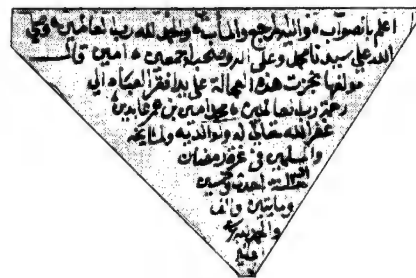 اعلم بالصواب، واليه المرجع والمآب، والحمد لله رب العالمين، وصلى
الله على سيدنا محمد وعلى اله وصحبه اجمعين، امين قال
مولفها نجزت هذه العجالة على يد افقر العباد الى
رحمة رب العالمين، محمد امين بن عمر عابدين،
غفر الله تعالى له ولوالديه ولمشايخه
والمسلمين في غرة رمضان
سنة احدى وخمسين
ومايتين والف
والحمد لله